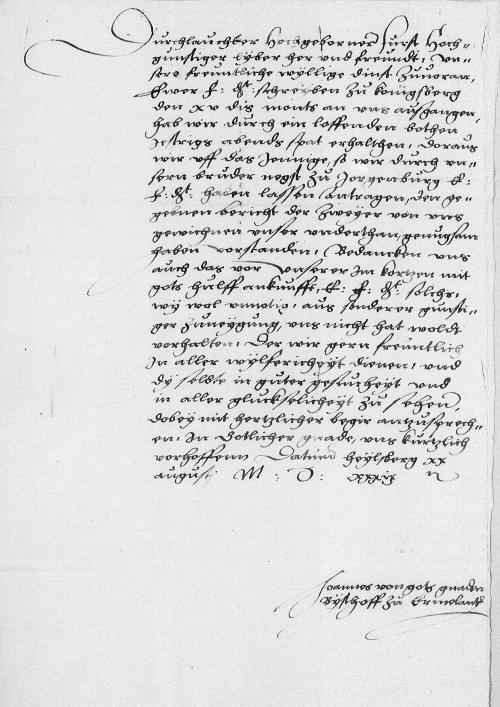 Durchlauchter Hochgeborner furst Hoch-
gunstiger lyber her vnd freundt, vn-
sere freuntliche wyllige dinst zuuoran,
Ewer f: dt: schreyben zu konigsberg
den xv dis monts an vns ausgangen,
hab wir durch ein loffenden bothen
Jestrigs abends spat erhalthen, Doraus
wir vff das Jennige, so wir durch vn-
sern bruder negst zu Jorgenburg E:
f: dt: haben lassen antragen, den ge-
gebnen bericht der zweyer von vns
gewichnen vnser vnderthan gnugsam
haben vorstanden, Bedancken vns
auch das vor vnserer Im kortzen mit
gots hulff ankunfft, E: f: dt: solchs,
wy wol vnnotig, aus sonderer gunsti-
ger zuneygung, vns nicht hat wolde
vorhalten, Der wir gern freuntlich
In aller wylferickeyt dienen, vnd
dy selbte in guter gesuntheyt vnd
in aller gluckselickeyt zu sehen,
dobey mit hertzlicher begir antzusprech-
en, In Gotlicher gnade, vns kurtzlich
vorhoffenn Datum heylsberg xx
augusti M: D: xxxix
Joannes von gots gnaden
Byschoff zu Ermelandt